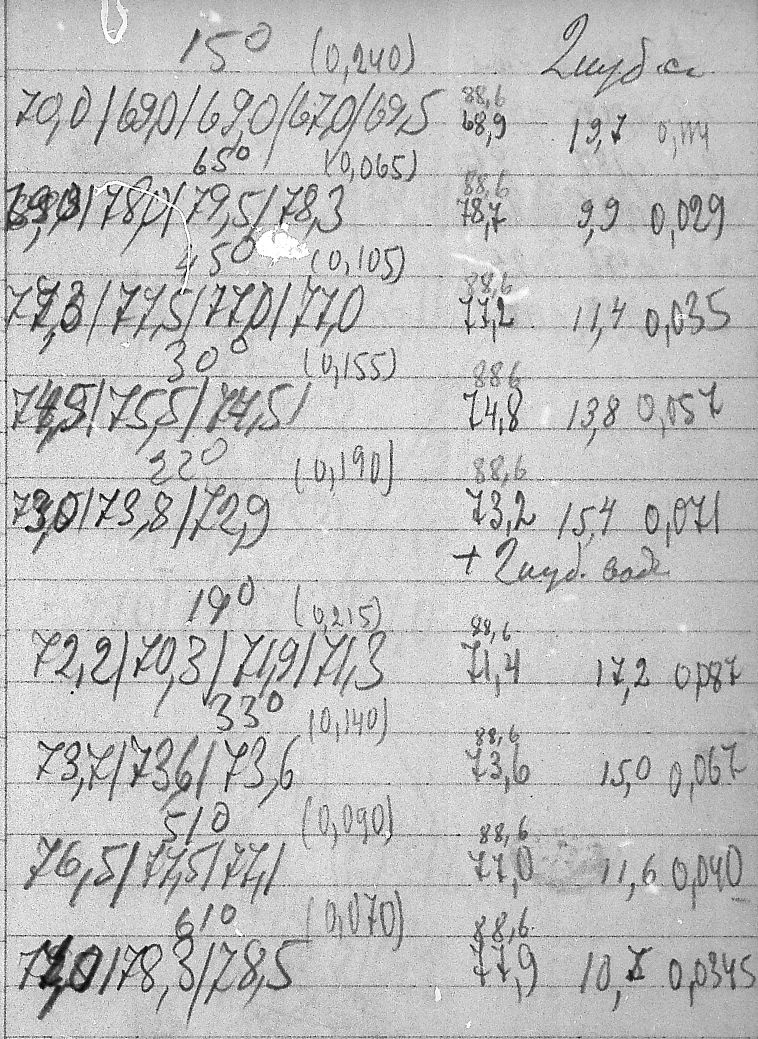 15° (0,240) 2куб.см
88,6
70,0/69,0/69,0/67,0/69,5 68,9 19,7
65° (0,065)
88,6
78,0/79,5/78,3 78,7 9,9 0,029
45° (0,105)
88,6
77,3/77,5/77,0/77,0 77,2 11,4 0,035
30° (0,155)
88,6
74,5/75,5/74,5/ 74,8 13,8 0,057
22° (0,190)
88,6
73,0/73,8/72,9 73,2 15,4 0,071
+ 2куб. вод
19° (0,215)
88,6
72,2/70,3/71,9/71,3 71,4 17,2 0,087
33° (0,140)
88,6
73,7/73,6/73,6 73,6 15,0 0,067
51° (0,090)
88,6
76,5/77,5/77,1 77,0 11,6 0,040
61° (0,070)
88,6
77,0/78,3/78,5 77,9 10,7 0,0345